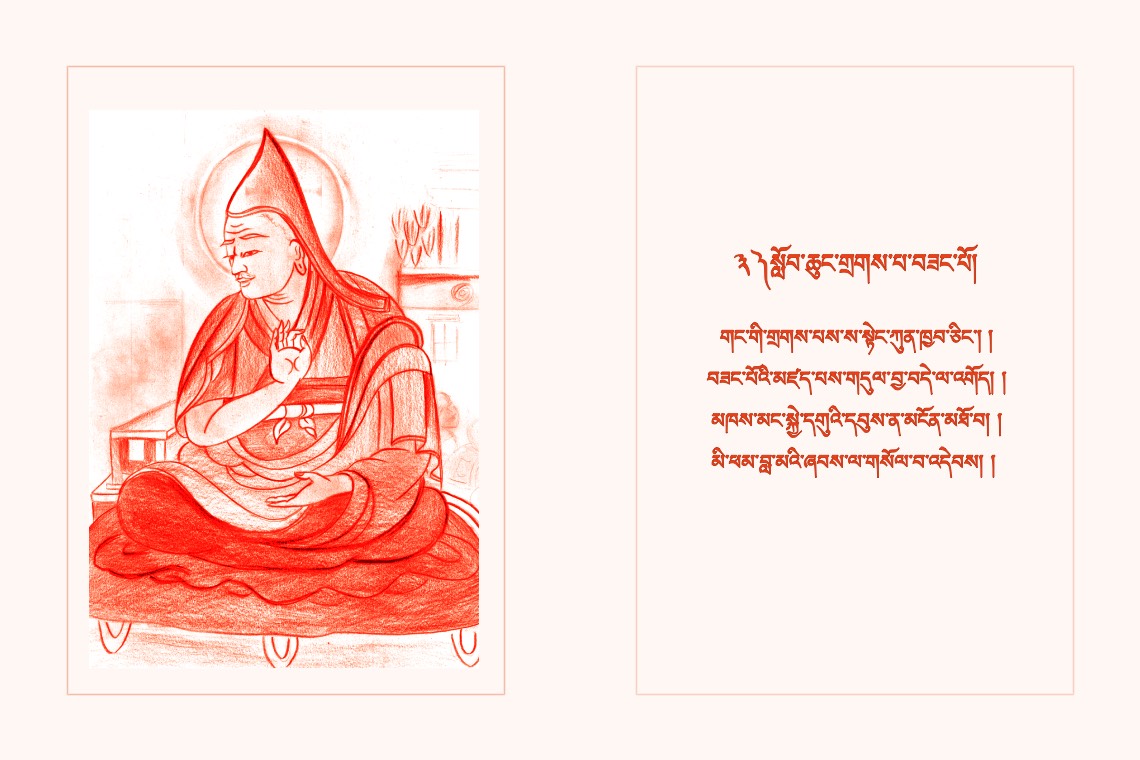 ༣ ༽ སློབ་ཆུང་གྲགས་པ་བཟང་པོ།
གང་གི་གྲགས་པས་ས་སྟེང་ཀུན་ཁྱབ་ཅིང་། །
བཟང་པོའི་མཛད་པས་གདུལ་བྱ་བདེ་ལ་འགོད། །
མཁས་མང་སྐྱེ་དགུའི་དབུས་ན་མངོན་མཐོ་བ། །
མི་ཕམ་བླ་མའི་ཞབས་ལ་གསོལ་བ་འདེབས། །